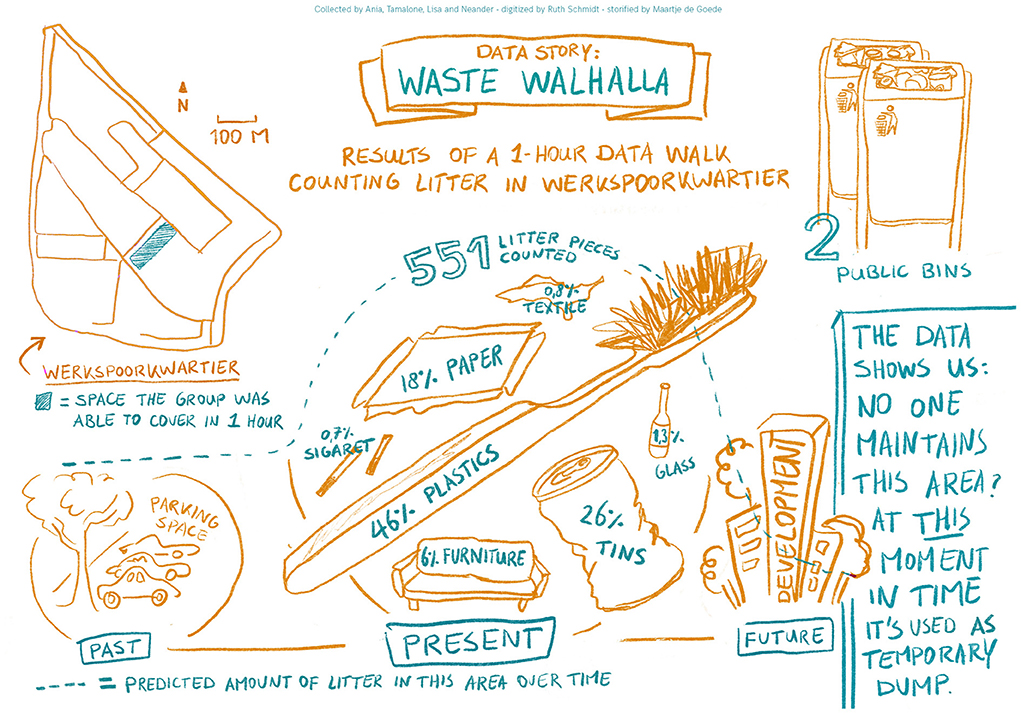 Collected by Ania, Tamalone, Lisa and Neander - digitized by Ruth Schmidt - storified by Maartje de Goede
DATA STORY:
WASTE WALHALLA
N
100 M
RESULTS OF A 1-HOUR DATA WALK
COUNTING LITTER IN WERKSPOORKWARTIER
2
PUBLIC BINS
WERKSPOORKWARTIER
= SPACE THE GROUP WAS
ABLE TO COVER IN 1 HOUR
551 LITTER PIECES
COUNTED
0,8%
TEXTILE
18% PAPER
0,7%
SIGARET
46% PLASTICS
1,3%
GLASS
26%
TINS
6% FURNITURE
PARKING
SPACE
DEVELOPMENT
PAST
PRESENT
FUTURE
---- = PREDICTED AMOUNT OF LITTER IN THIS AREA OVER TIME
THE DATA
SHOWS US:
NO ONE
MAINTAINS
THIS AREA?
AT THIS
MOMENT
IN TIME
IT'S USED AS
TEMPORARY
DUMP.